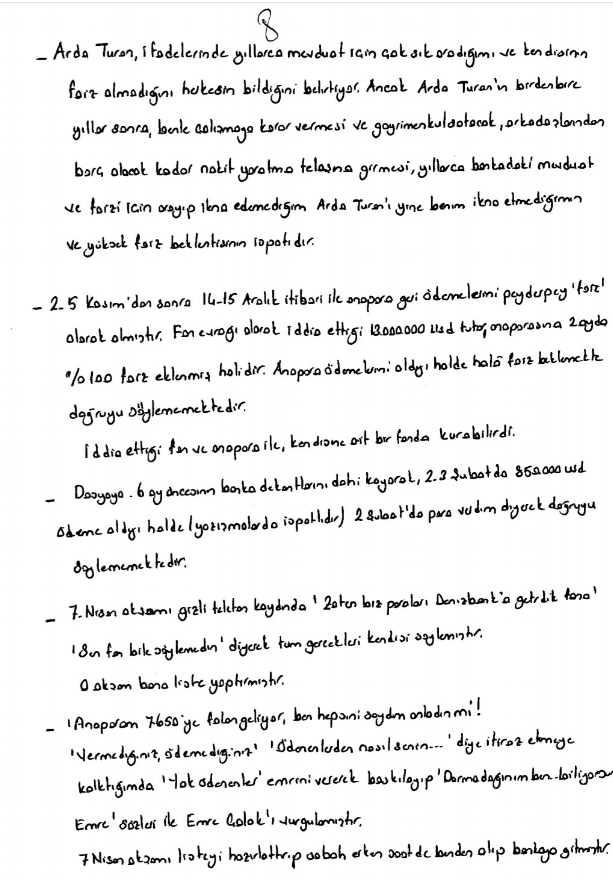 8
- Arda Turan, ifadelerinde yıllarca mevduat için çok sık aradığımı ve kendisinin
faiz almadığını herkesin bildiğini belirtiyor. Ancak Arda Turan'ın birdenbire
yıllar sonra, benle çalışmaya karar vermesi ve gayrimenkul satacak, arkadaşlarından
borç alacak kadar nakit yaratma telaşına girmesi, yıllarca bankadaki mevduat
ve faizi için arayıp ikna edemediğim Arda Turan'ı yine benim ikna etmediğimin
ve yüksek faiz beklentisinin ispatıdır.
- 2-5 Kasım'dan sonra 14-15 Aralık itibari ile anapara geri ödemelerini peyderpey 'faiz'
olarak almıştır. Fon evrağı olarak iddia ettiği 13.000.000 usd tutar, anaparasına 2 ayda
%100 faiz eklenmiş halidir. Anapara ödemelerini aldığı halde hala faiz beklemekte
doğruyu söylememektedir.
İddia ettiği fon ve anapara ile, kendisine ait bir fonda kurabilirdi.
- Dosyaya 6 ay öncesinin banka dekontlarını dahi koyarak, 2-3 Şubatda 850.000 usd
ödeme aldığı halde (yazışmalarda ispatlıdır) 2 Şubat'da para verdim diyerek doğruyu
söylememektedir.
- 7. Nisan akşamı gizli telefon kaydında 'Zaten biz paraları Denizbank'a getirdik fona'
'Sen fon bile söylemedin' diyerek tüm gerçekleri kendisi söylemiştir.
O akşam bana liste yaptırmıştır.
- 'Anaparam 7650'ye falan geliyor, ben hepsini saydım anladın mı!
'Vermediğiniz, ödemediğiniz' 'Ödenenlerden nasıl senin...' diye itiraz etmeye
kalktığımda 'Yok ödenenler' emrini vererek baskılayıp 'Darmadağınım ben biliyorsun
Emre' sözleri ile Emre Çolak'ı vurgulamıştır.
7 Nisan akşamı listeyi hazırlattırıp sabah erken saatde benden alıp bankaya gitmiştir.